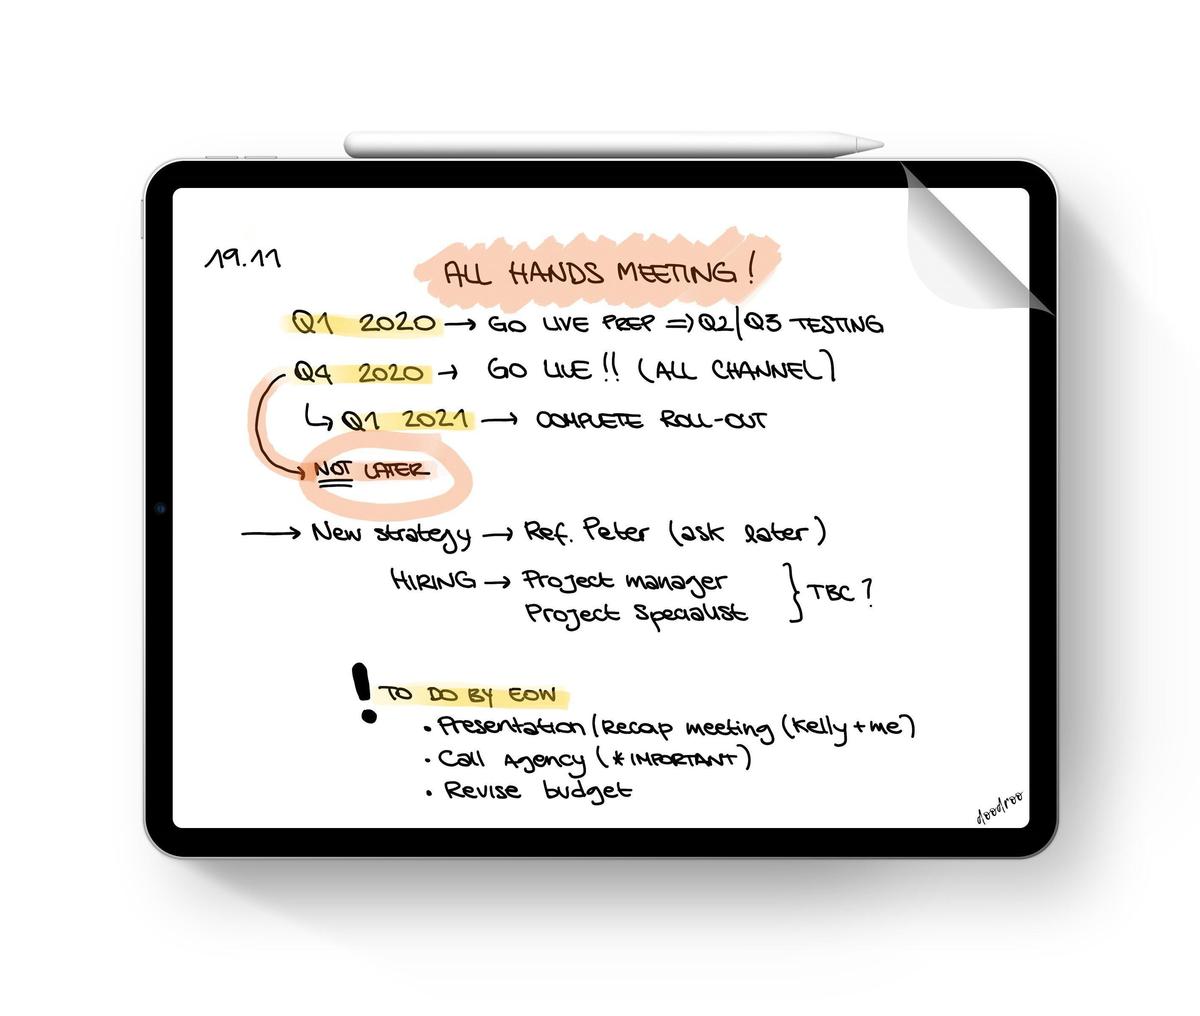 19.11
ALL HANDS MEETING!
Q1 2020 → GO LIVE PREP => Q2/Q3 TESTING
Q4 2020 → GO LIVE!! (ALL CHANNEL)
↳ Q1 2021 → COMPLETE ROLL-OUT
NOT LATER
→ New strategy → Ref. Peter (ask later)
HIRING → Project manager
Project Specialist } TBC?
! TO DO BY EOW
• Presentation/Recap meeting (Kelly+me)
• Call Agency (*IMPORTANT)
• Revise budget
doodroo